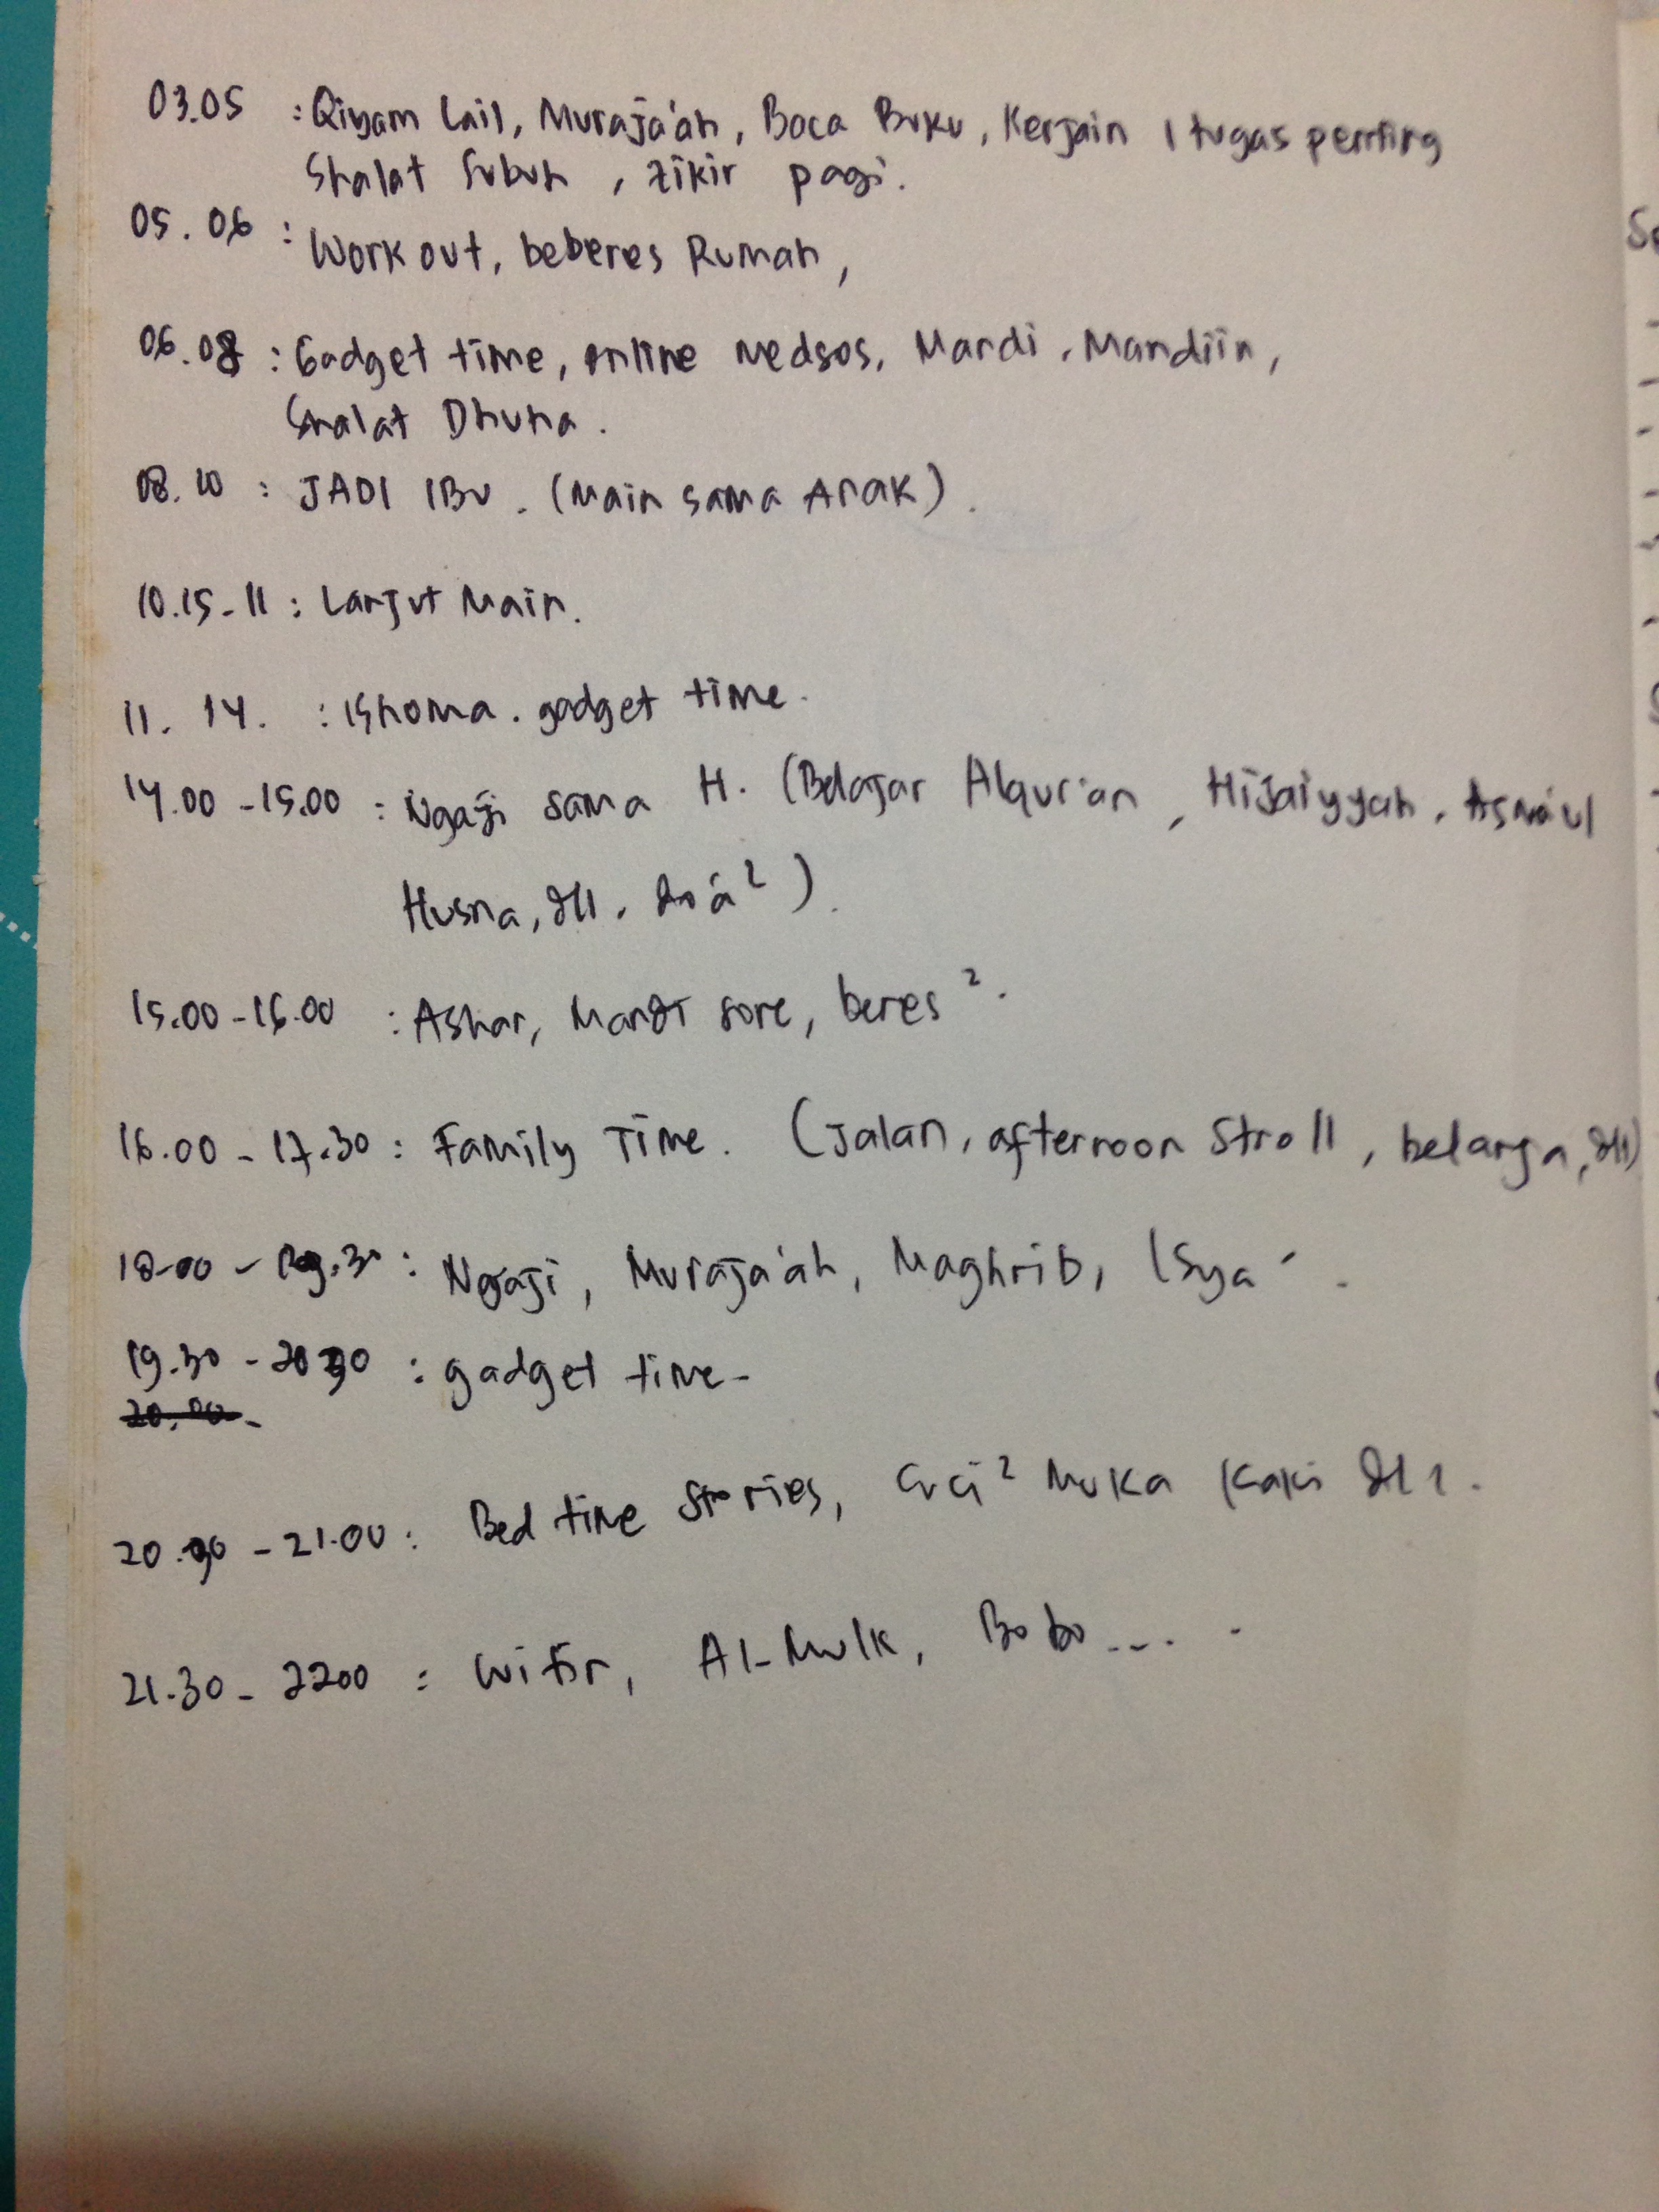 03.05 : Qiyam Lail, Muraja'ah, Baca Buku, Kerjain 1 tugas penting
Shalat Subuh, zikir pagi.
05.06 : Work out, beberes Rumah,
06.08 : Gadget time, online Medsos, Mandi, Mandiin,
Shalat Dhuha.
08.10 : JADI IBU. (Main sama Anak).
10.15-11 : Lanjut Main.
11. 14. : Ishoma. gadget time.
14.00-15.00 : Ngaji sama H. (Belajar Alqur'an, Hijaiyyah, Asma'ul
Husna, dll. do'a²).
15.00-16.00 : Ashar, Mandi sore, beres².
16.00-17.30 : Family Time. (Jalan, afternoon Stroll, belanja, dll)
18.00 - 19.30 : Ngaji, Muraja'ah, Maghrib, Isya'.
19.30 - 20.30 : gadget time-
20.00-
20.30 - 21.00 : Bed time stories, Cuci² Muka Kaki dll.
21.30 - 2200 : witir, Al-Mulk, Bobo....